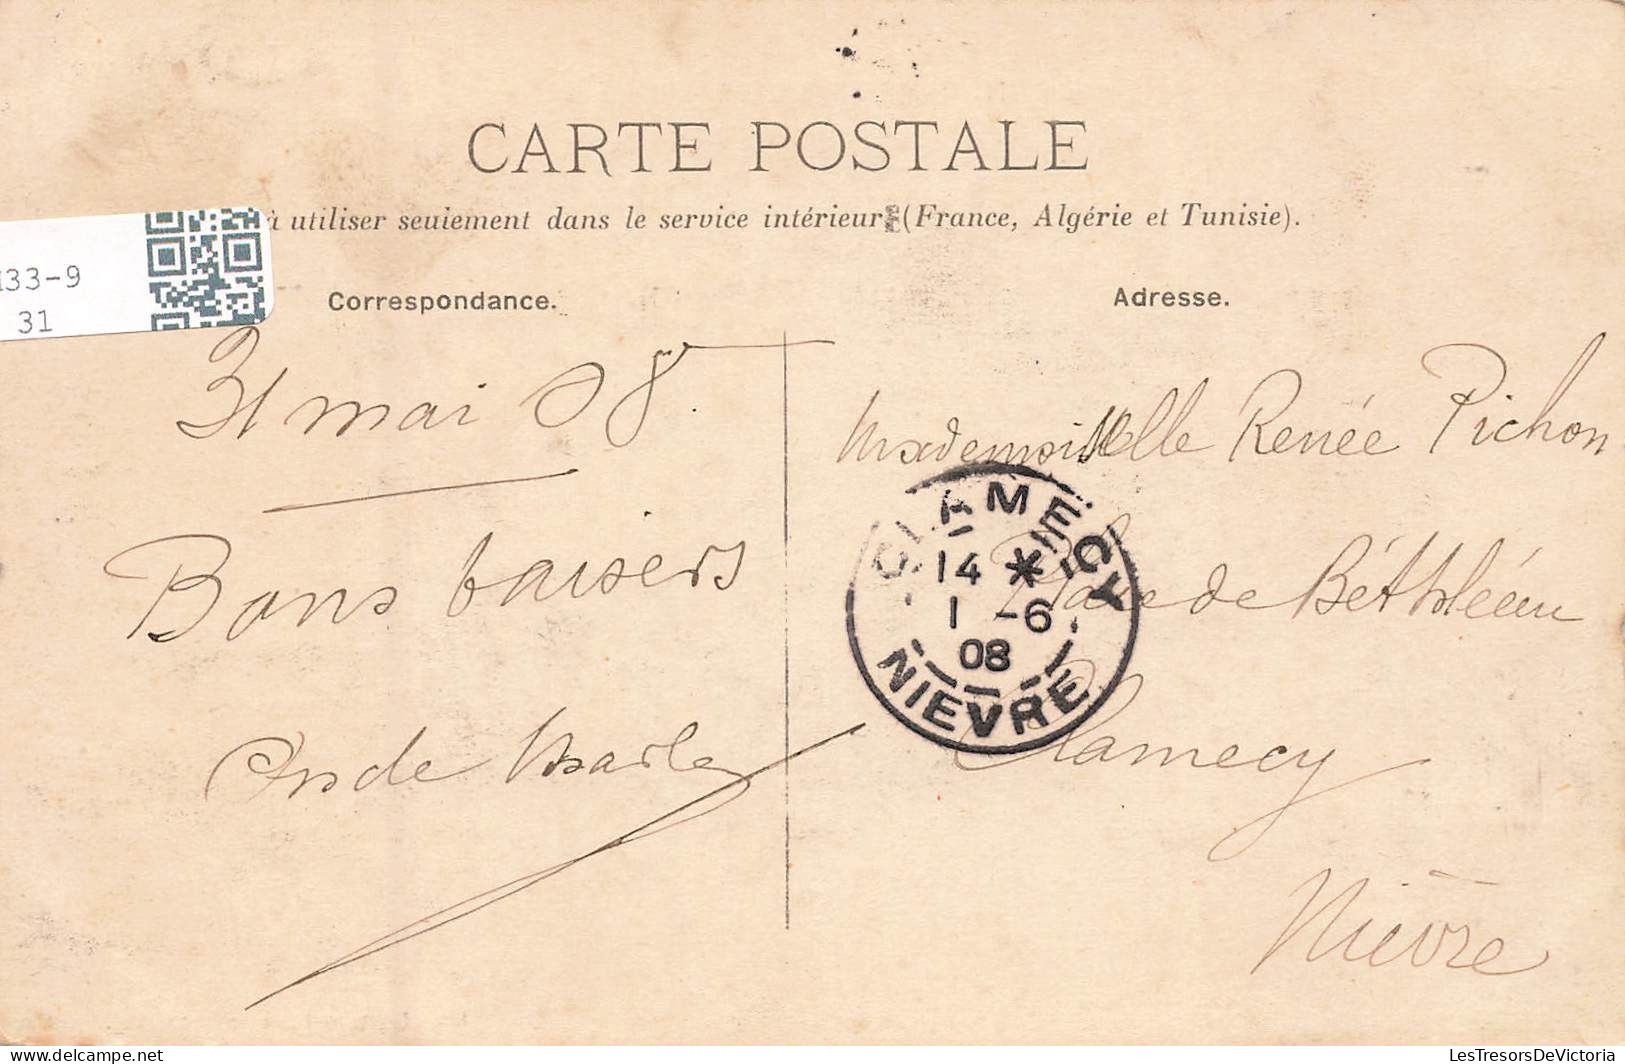 CARTE POSTALE
à utiliser seulement dans le service intérieur (France, Algérie et Tunisie).
133-9
31
Correspondance.
31 mai 08
Bons baisers
Adresse.
Mademoiselle Renée Pichon
de Béthléem
Clamecy
Nièvre
CLAMECY
14 *
1 -6
08
NIEVRE
delcampe.net
LesTresorsDeVictoria